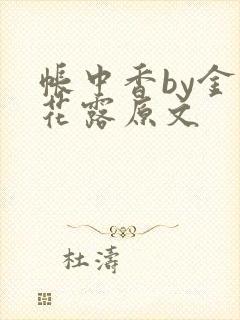 帳中香by金
花露原文
杜濤